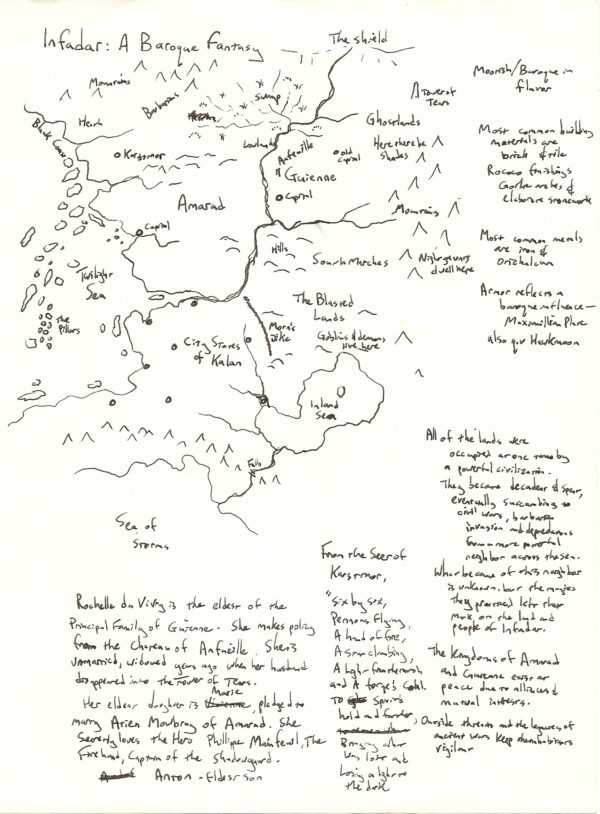 Infadar: A Baroque Fantasy
The shield
Mountains
Barbarians
Swamp
Tower of
Tears
Moorish/Baroque in
flavor
Black Coast
Heath
Lowlands
Ghostlands
Karstmor
Anfenille
Guienne
old
Capital
Here there be
Shades
Most common building
materials are
brick & tile
Rococo finishings
Gothic arches &
elaborate stonework
Amarad
Capital
Mountains
Capital
Hills
South Marches
Nightgaunts
dwell here
Most common metals
are iron &
Orichalcum
Twilight
Sea
The Blasted
Lands
Armor reflects a
baroque influence—
Maximillian Plate
also q.v Hawkmoon
The
Pillars
Morn's
Dike
Goblins & demons
live here
City States
of Kalan
Inland
Sea
Falls
Sea of
Storms
All of the lands were
occupied at one time by
a powerful civilization.
They became decadent & spent,
eventually succumbing to
civil wars, barbaric
invasion and depredations
from a more powerful
neighbor across the sea.
What became of this neighbor
is unknown, but the magics
they practiced left their
mark on the land and
people of Infadar.
The Kingdoms of Amarad
and Guienne exist at
peace due to alliances &
mutual interests.
Outside threats and the legacies of
ancient wars keep them
vigilant
From the Seer of
Karstmor,
"Six by six,
Pennons flying,
A hand of fire,
A star climbing,
A light
and A forge's Cold.
To Spirits
hold and further,
Bringing what
was lost and
Losing a light to
the dark
Rochelle du Vivey is the eldest of the
Principal Family of Guienne. She makes policy
from the Chateau of Anfneille. She is
unmarried, widowed years ago when her husband
disappeared into the Tower of Tears.
Her eldest daughter is Marie, pledged to
marry Arien Moulbray of Amarad. She
secretly loves the Hero Phillipe Mainfewl, The
Firehand, Captain of the Shadowguard.
Anton - Eldest son